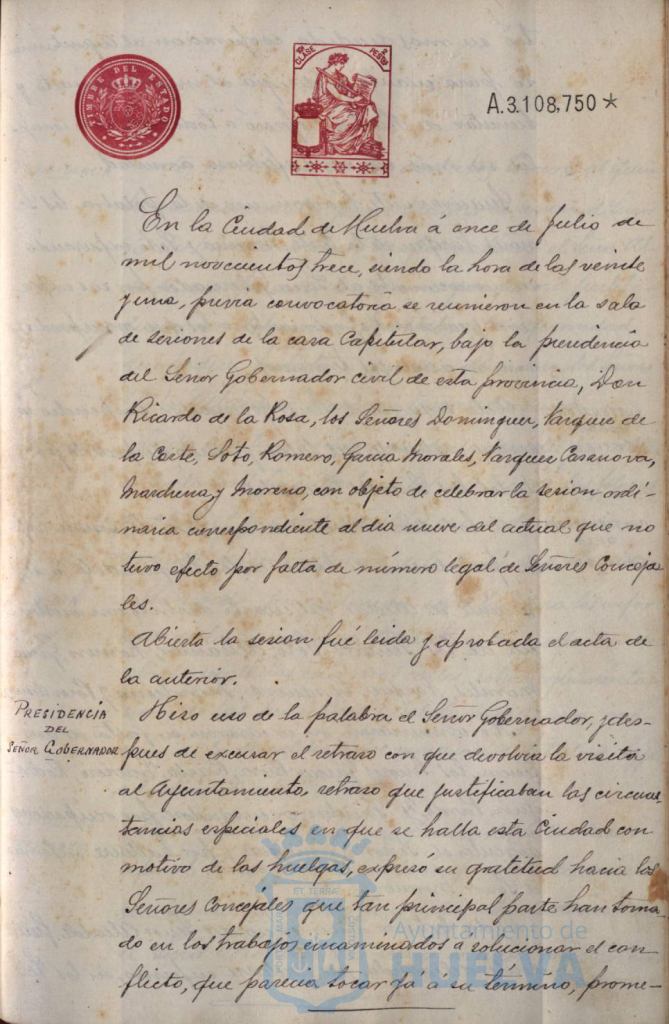 TIMBRE DEL ESTADO
CLASE
PESETAS
A.3.108,750*
En la Ciudad de Huelva á once de Julio de
mil novecientos trece, siendo la hora de las veinte
y una, previa convocatoria se reunieron en la sala
de sesiones de la casa Capitular, bajo la presidencia
del Señor Gobernador civil de esta provincia, Don
Ricardo de la Rosa, los Señores Dominguez, Vazquez de
la Corte, Soto, Romero, Garcia Morales, Vazquez Casanova,
Marchena, y Moreno, con objeto de celebrar la sesion ordi-
naria correspondiente al dia nueve del actual que no
tuvo efecto por falta de número legal de Señores Conceja
les.
Abierta la sesion fué leida y aprobada el acta de
la anterior.
PRESIDENCIA
DEL
SEÑOR GOBERNADOR
Hizo uso de la palabra el Señor Gobernador, y des-
pues de excusar el retraso con que devolvia la visita
al Ayuntamiento, retraso que justificaban las circuns
tancias especiales en que se halla esta Ciudad con
motivo de las huelgas, expresó su gratitud hacia los
Señores Concejales que tan principal parte han toma
do en los trabajos encaminados a solucionar el con
flicto, que parecia tocar yá á su término, prome-
Ayuntamiento de
HUELVA